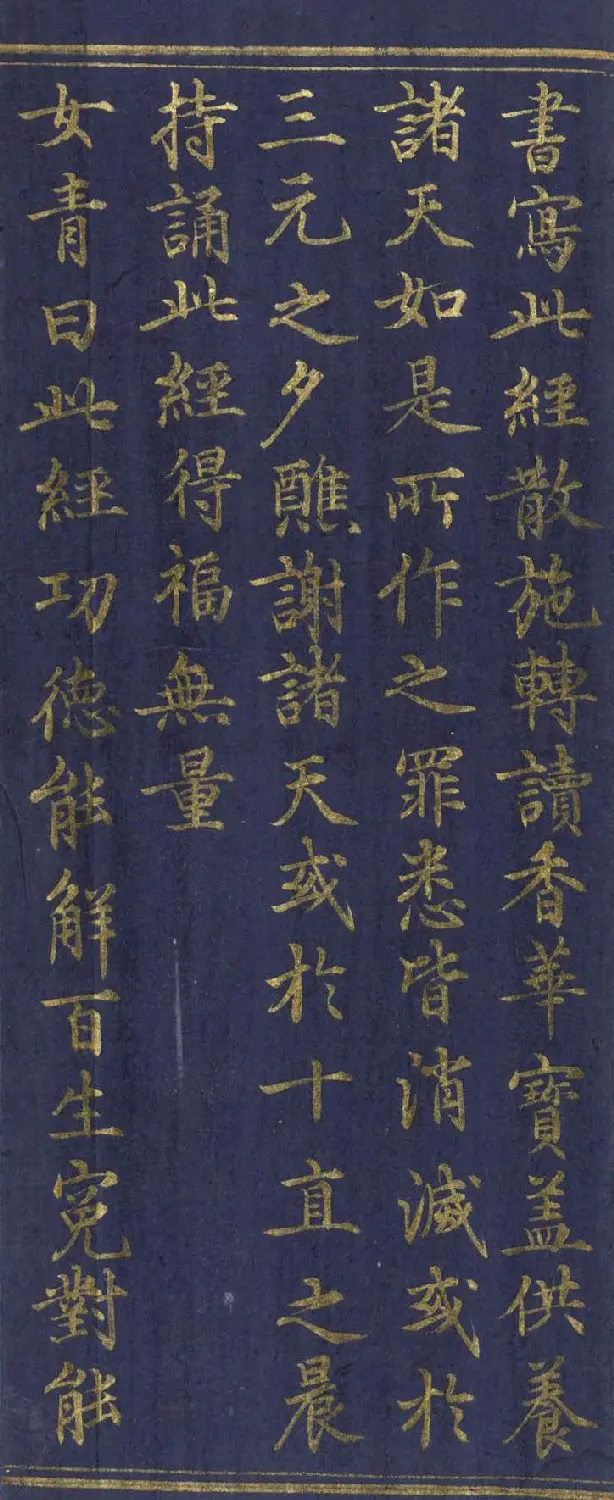 書寫此經散施轉讀香華寶盖供養
諸天如是所作之罪悉皆消滅或於
三元之夕醮謝諸天或於十直之晨
持誦此經得福無量
女青曰此經功德能解百生冤對能